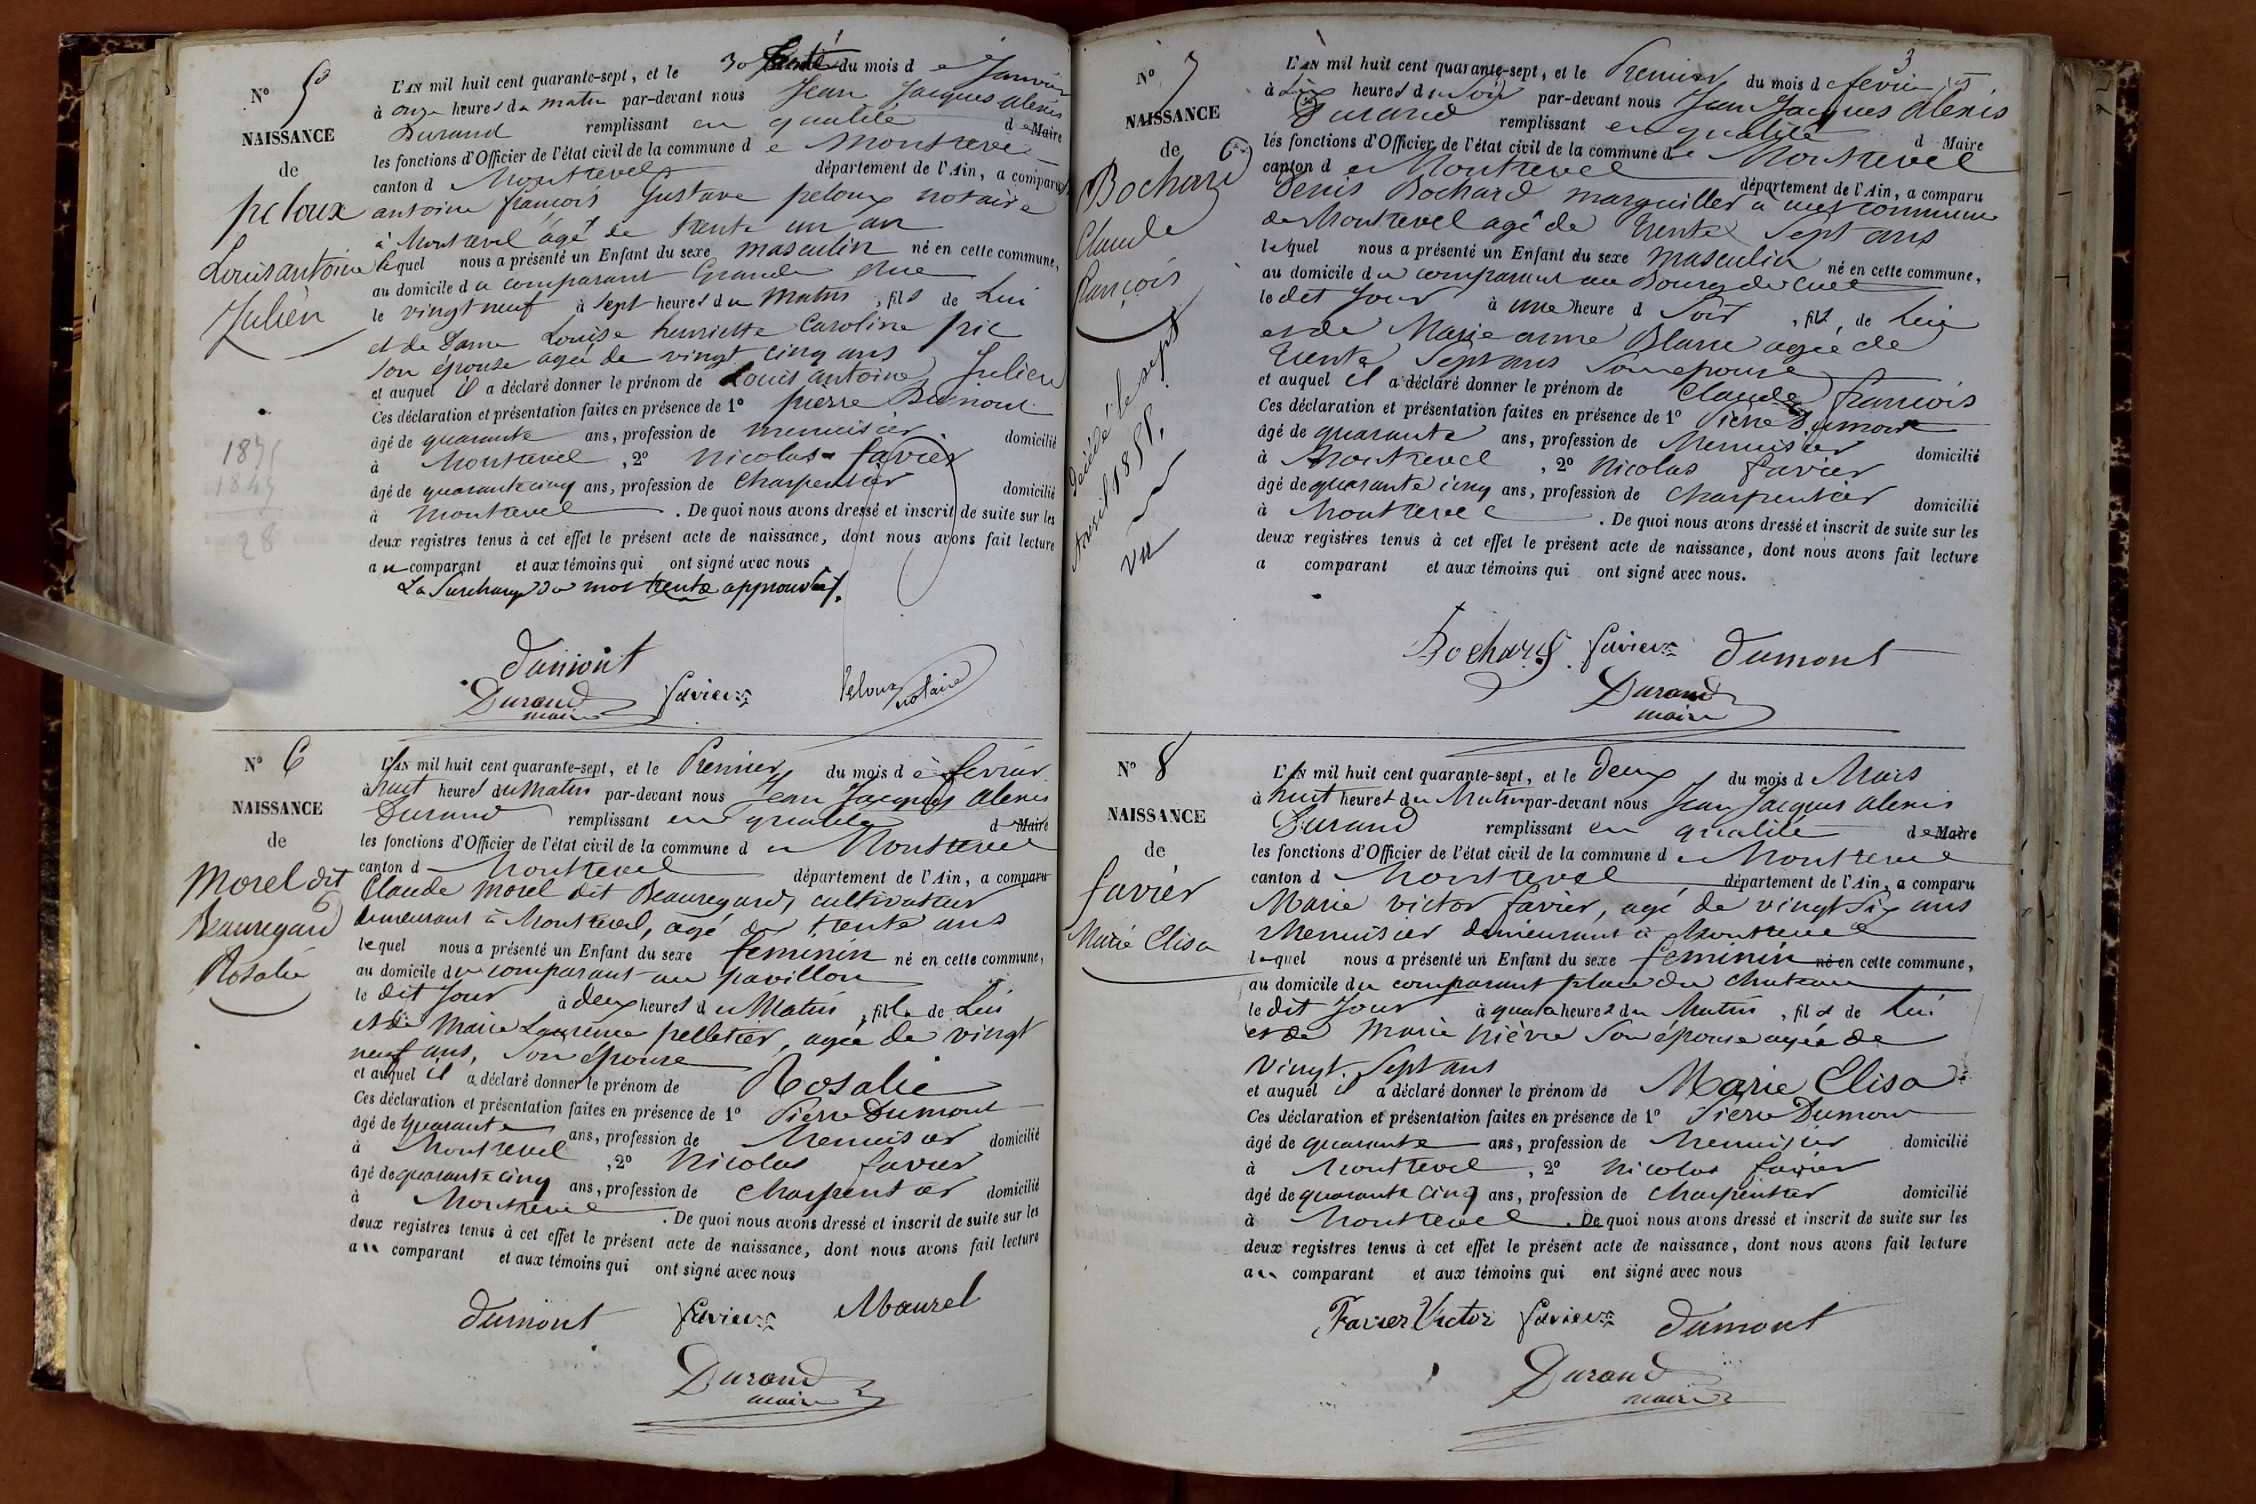 N° 5
NAISSANCE
de
peloux
Louis antoine
Julien
1875
1847
28
L'AN mil huit cent quarante-sept, et le 30 trente du mois de Janvier
à onze heures du matin par-devant nous Jean Jacques alexis
Durand remplissant en qualité de Maire
les fonctions d'Officier de l'état civil de la commune de Montrevel
canton d Montrevel département de l'Ain, a comparu
antoine françois Gustave peloux notaire
à Montrevel âgé de trente un an
lequel nous a présenté un Enfant du sexe masculin né en cette commune,
au domicile du comparant Grande Rue
le vingt neuf à sept heures du Matin, fils de Lui
et de Dame Louise henriette Caroline pic
son épouse agée de vingt cinq ans
et auquel il a déclaré donner le prénom de Louis antoine Julien
Ces déclaration et présentation faites en présence de 1° pierre Dumont
âgé de quarante ans, profession de menuisier domicilié
à Montrevel, 2° Nicolas favier
âgé de quarante cinq ans, profession de Charpentier domicilié
à Montrevel. De quoi nous avons dressé et inscrit de suite sur les
deux registres tenus à cet effet le présent acte de naissance, dont nous avons fait lecture
au comparant et aux témoins qui ont signé avec nous
La Surcharge du mot trente approuvée.
Dumont
Durand favier Peloux
maire notaire
N° 6
NAISSANCE
de
Morel dit
Beauregard
Rosalie
L'AN mil huit cent quarante-sept, et le Premier du mois de fevrier
à huit heures du Matin par-devant nous Jean Jacques Alexis
Durand remplissant en qualité d Maire
les fonctions d'Officier de l'état civil de la commune de Montrevel
canton d Montrevel département de l'Ain, a comparu
Claude Morel dit Beauregard, cultivateur
demeurant à Montrevel, agé de trente ans
lequel nous a présenté un Enfant du sexe feminin né en cette commune,
au domicile du comparant au pavillon
le dit Jour à deux heures du Matin, fille de Lui
et de Marie Laurence pelletier, agée de vingt
neuf ans, Son épouse
et auquel il a déclaré donner le prénom de Rosalie
Ces déclaration et présentation faites en présence de 1° Pierre Dumont
âgé de quarante ans, profession de Menuisier domicilié
à Montrevel, 2° Nicolas favier
âgé de quarante cinq ans, profession de Charpentier domicilié
à Montrevel. De quoi nous avons dressé et inscrit de suite sur les
deux registres tenus à cet effet le présent acte de naissance, dont nous avons fait lecture
au comparant et aux témoins qui ont signé avec nous
Dumont favier Maurel
Durand
maire
3
N° 7
NAISSANCE
de
Bochard
Claude
François
Décédé le sept
Avril 1858.
vu
L'AN mil huit cent quarante-sept, et le Premier du mois de fevrier
à six heures du Soir par-devant nous Jean Jacques Alexis
Durand remplissant en qualité d Maire
les fonctions d'Officier de l'état civil de la commune de Montrevel
canton de Montrevel département de l'Ain, a comparu
Denis Bochard marguiller à cuet commune
de Montrevel agé de trente Sept ans
lequel nous a présenté un Enfant du sexe Masculin né en cette commune,
au domicile du comparant au Bourg de cuet
le dit Jour à une heure d Soir, fils, de Lui
et de Marie anne Blanc agée de
trente Sept ans Son epouse
et auquel il a déclaré donner le prénom de Claude françois
Ces déclaration et présentation faites en présence de 1° Pierre Dumont
âgé de quarante ans, profession de Menuisier domicilié
à Montrevel, 2° Nicolas favier
âgé de quarante cinq ans, profession de Charpentier domicilié
à Montrevel. De quoi nous avons dressé et inscrit de suite sur les
deux registres tenus à cet effet le présent acte de naissance, dont nous avons fait lecture
a comparant et aux témoins qui ont signé avec nous.
Bochard favier Dumont
Durand
maire
N° 8
NAISSANCE
de
favier
Marie Elisa
L'AN mil huit cent quarante-sept, et le deux du mois d Mars
à huit heures du Matin par-devant nous Jean Jacques alexis
Durand remplissant en qualité de Maire
les fonctions d'Officier de l'état civil de la commune de Montrevel
canton d Montrevel département de l'Ain, a comparu
Marie victor favier, agé de vingt Six ans
Menuisier demeurant à Montrevel
lequel nous a présenté un Enfant du sexe feminin né en cette commune,
au domicile du comparant place du Chateau
le dit Jour à quatre heures du Matin, fil de Lui
et de Marie Nièvre Son épouse agée de
vingt Sept ans
et auquel il a déclaré donner le prénom de Marie Elisa
Ces déclaration et présentation faites en présence de 1° Pierre Dumont
âgé de quarante ans, profession de Menuisier domicilié
à Montrevel, 2° Nicolas favier
âgé de quarante cinq ans, profession de Charpentier domicilié
à Montrevel. De quoi nous avons dressé et inscrit de suite sur les
deux registres tenus à cet effet le présent acte de naissance, dont nous avons fait lecture
au comparant et aux témoins qui ont signé avec nous
Favier Victor favier Dumont
Durand
maire